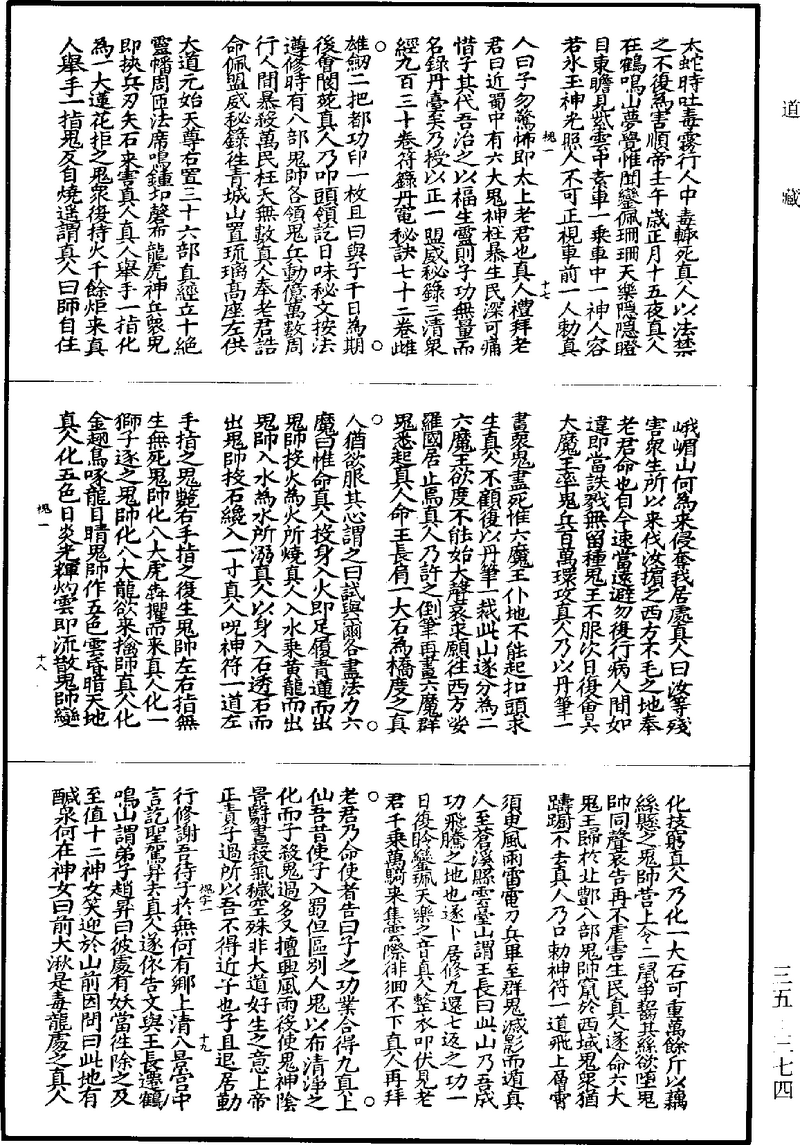 道藏
太蛇時吐毒霧行人中毒輙死真人以法禁
之不復為害順帝壬午歲正月十五夜真人
在鶴鳴山夢覺惟聞鑾佩珊珊天樂隱隱瞪
目東瞻見紫雲中素車一乗車中一神人容
若氷玉神光照人不可正視車前一人勑真
槐一
十七
人曰子勿驚怖即太上老君也真人禮拜老
君曰近蜀中有六大鬼神枉暴生民深可痛
惜子其代吾治之以福生靈則子功無量而
名錄丹臺矣乃授以正一盟威秘錄三清衆
經九百三十卷符籙丹竈秘訣七十二卷雌
雄劒二把都功印一枚且曰與子千日為期
後會閬苑真人乃叩頭領訖日味秘文按法
遵修時有八部鬼帥各領鬼兵動億萬數周
行人間暴殺萬民枉夭無數真人奉老君誥
命佩盟威秘錄徃青城山置琉璃高座左供
大道元始天尊右置三十六部真經立十絶
靈幡周匝法席鳴鍾叩磬布龍虎神兵衆鬼
即挾兵刃矢石来害真人真人舉手一指化
為一大蓮花拒之鬼衆復持火千餘炬来真
人舉手一指鬼反自燒遥謂真人曰師自住
峨嵋山何為来侵奪我居處真人曰汝等殘
害衆生所以来伐汝擯之西方不毛之地奉
老君命也自今速當遠避勿復行病人間如
違即當誅戮無留種鬼王不服次日復會六
大魔王率鬼兵百萬環攻真人乃以丹筆一
畫衆鬼盡死惟六魔王仆地不能起扣頭求
生真人不顧復以丹筆一裁此山遂分為二
六魔王欲度不能始大聲哀求願徃西方娑
羅國居止焉真人乃許之倒筆再畫六魔群
鬼悉起真人命王長肩一大石為橋度之真
人猶欲服其心謂之曰試與爾各盡法力六
魔曰惟命真人投身入火即足履青蓮而出
鬼帥投火為火所燒真人入水乗黃龍而出
鬼帥入水為水所溺真人以身入石透石而
出鬼帥投石纔入一寸真人呪神符一道左
手指之鬼斃右手指之復生鬼帥左右指無
生無死鬼帥化八大虎犇攫而来真人化一
獅子逐之鬼帥化八大龍欲来擒師真人化
金翅鳥啄龍目睛鬼帥作五色雲昏暗天地
真人化五色日炎光輝灼雲即流散鬼帥變
槐一
十八
化技窮真人乃化一大石可重萬餘斤以藕
絲縣之鬼帥營上令二鼠爭齧其絲欲墮鬼
帥同聲哀告再不虐害生民真人遂命六大
鬼王歸於北酆八部鬼帥竄於西域鬼衆猶
躊躇不去真人乃口勑神符一道飛上層霄
須臾風雨雷電刀兵畢至群鬼滅影而遁真
人至蒼溪縣雲臺山謂王長曰此山乃吾成
功飛騰之地也遂卜居修九還七返之功一
日復聆鑾珮天樂之音真人整衣叩伏見老
君千乗萬騎来集雲際徘徊不下真人再拜
老君乃命使者告曰子之功業合得九真上
仙吾昔使子入蜀但區別人鬼以布清淨之
化而子殺鬼過多又擅興風雨役使鬼神陰
景翳晝殺氣穢空殊非大道好生之意上帝
正責子過所以吾不得近子也子且退居勤
槐一
十九
行修謝吾待子於無何有鄉上清八景宮中
言訖聖駕昇去真人遂依告文與王長遷鶴
鳴山謂弟子趙昇曰彼處有妖當徃除之及
至值十二神女笑迎於山前因問曰此地有
鹹泉何在神女曰前大湫是毒龍處之真人
三五—二七四